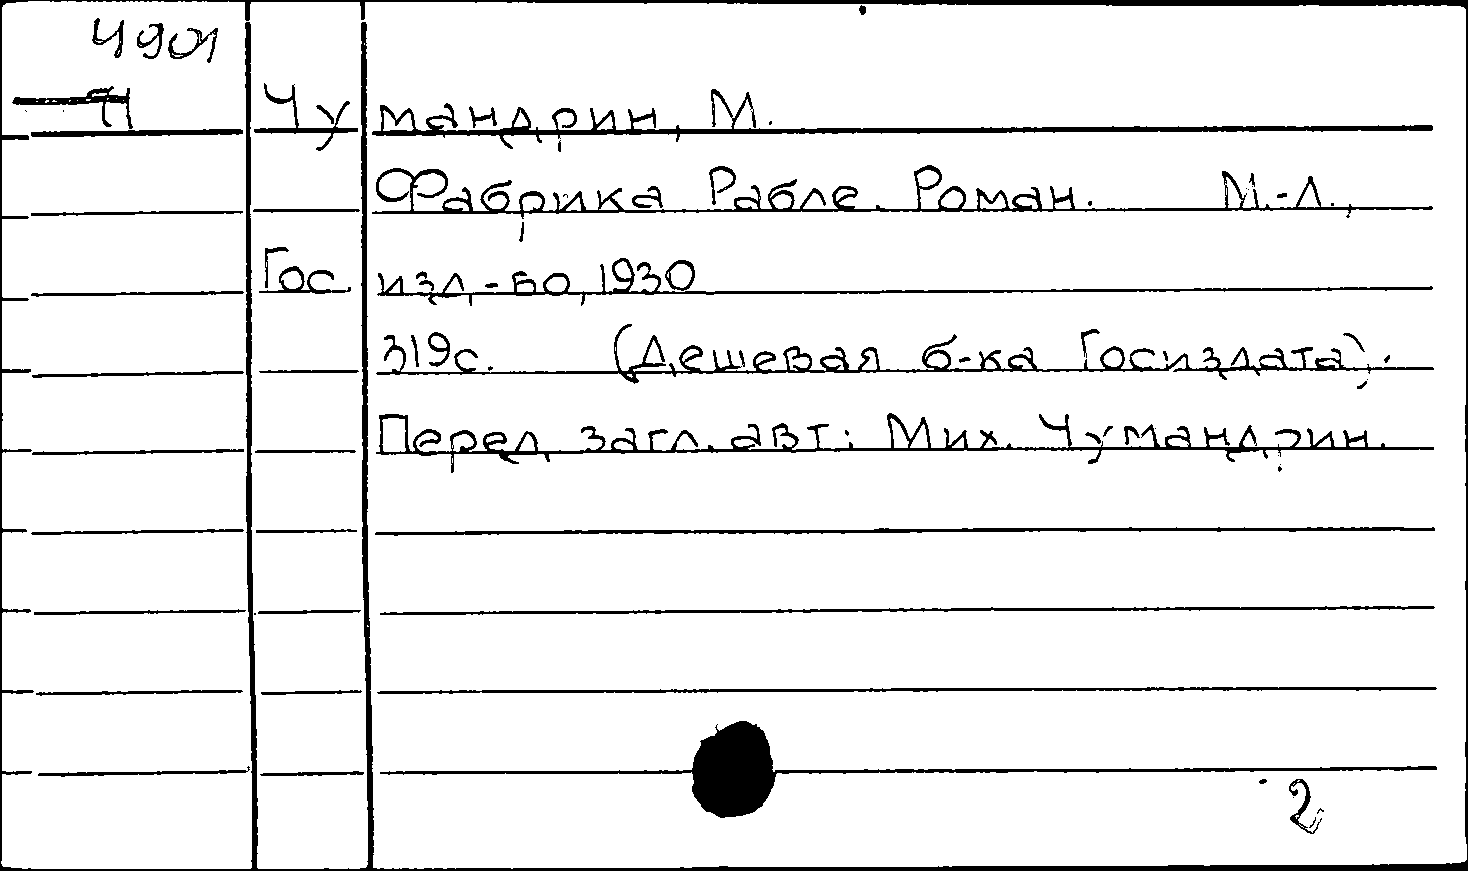 4901
Чумандрин, М.
Фабрика Рабле. Роман. М.-Л.,
Гос. изд-во, 1930
319с. (Дешевая б-ка Госиздата).
Перед загл. авт: Мих. Чумандрин.
2